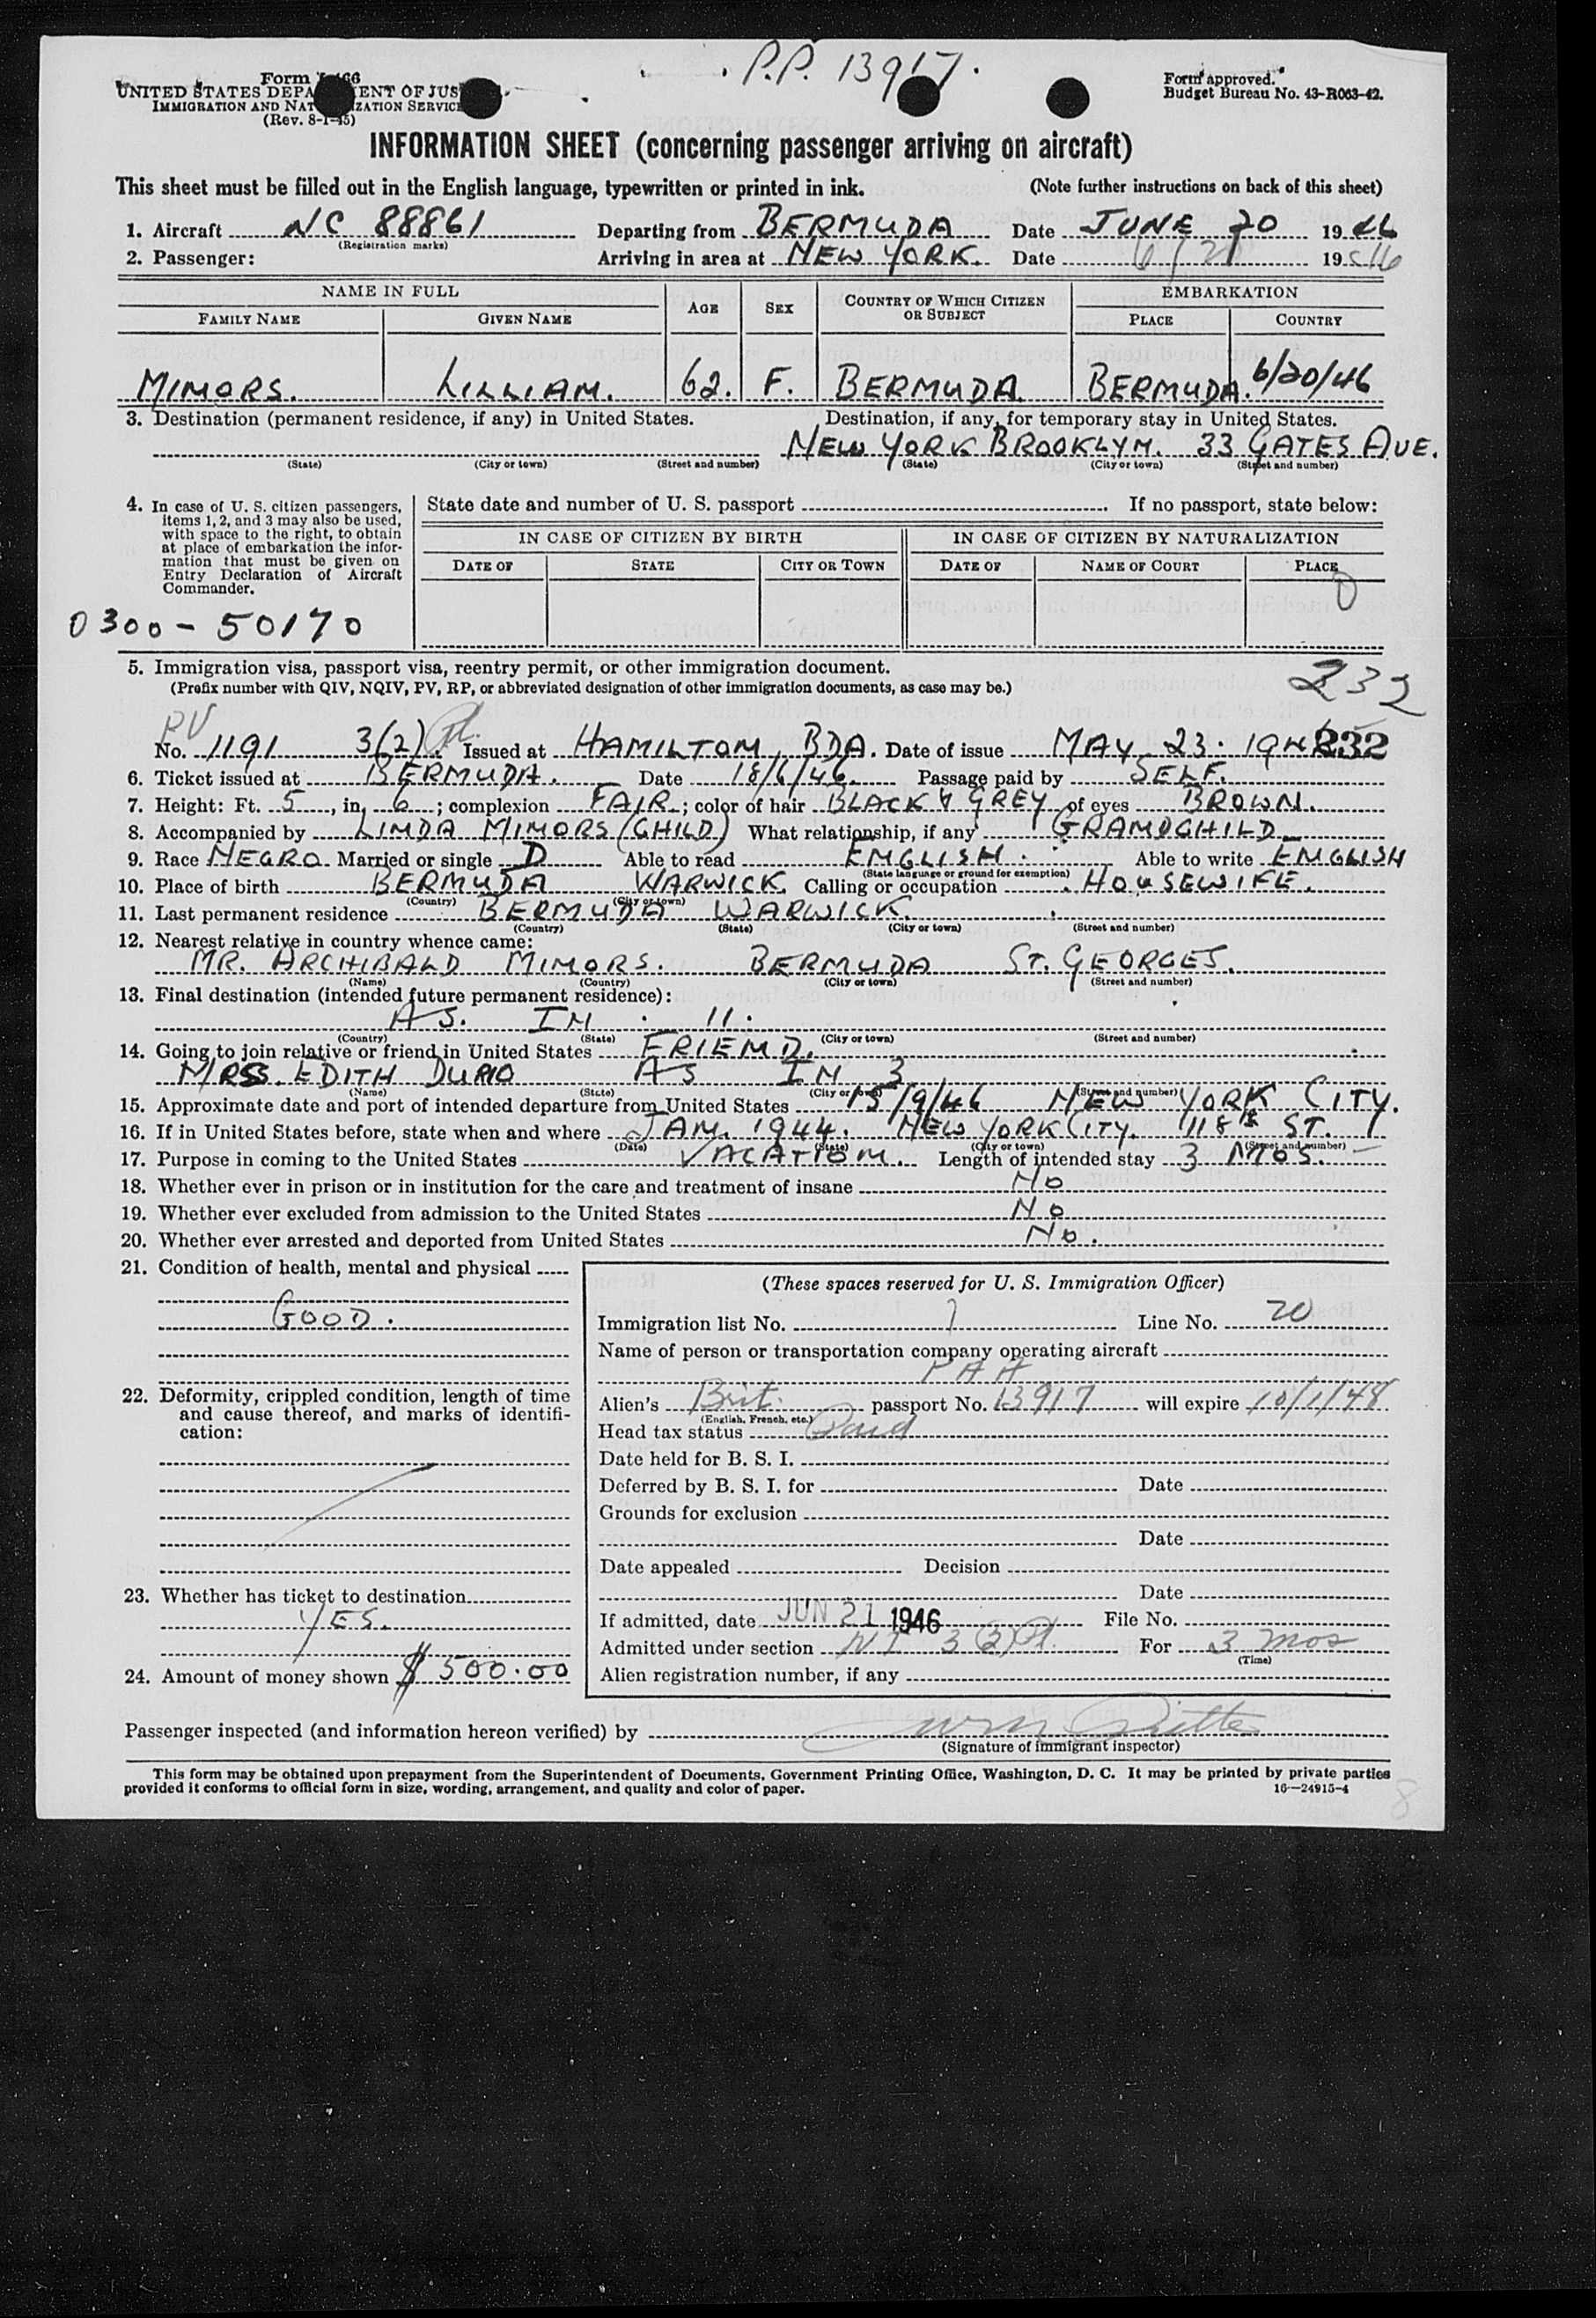 P.P. 13917.
Form
UNITED STATES DEPA ENT OF JUS
IMMIGRATION AND NAT IZATION SERVICE
(Rev. 8-1-45)
Form approved.
Budget Bureau No. 43-R063-42.
INFORMATION SHEET (concerning passenger arriving on aircraft)
This sheet must be filled out in the English language, typewritten or printed in ink. (Note further instructions on back of this sheet)
1. Aircraft NC 88861 Departing from BERMUDA Date JUNE 20 1946
(Registration marks)
2. Passenger: Arriving in area at NEW YORK. Date 6/20 1946
NAME IN FULL AGE SEX COUNTRY OF WHICH CITIZEN OR SUBJECT EMBARKATION
FAMILY NAME GIVEN NAME PLACE COUNTRY
MINORS. LILLIAN. 62. F. BERMUDA. BERMUDA. 6/20/46
3. Destination (permanent residence, if any) in United States. Destination, if any, for temporary stay in United States.
NEW YORK BROOKLYN. 33 GATES AVE.
(State) (City or town) (Street and number) (State) (City or town) (Street and number)
4. In case of U. S. citizen passengers, items 1, 2, and 3 may also be used, with space to the right, to obtain at place of embarkation the information that must be given on Entry Declaration of Aircraft Commander.
State date and number of U. S. passport If no passport, state below:
IN CASE OF CITIZEN BY BIRTH IN CASE OF CITIZEN BY NATURALIZATION
DATE OF STATE CITY OR TOWN DATE OF NAME OF COURT PLACE
0
0300 - 50170
5. Immigration visa, passport visa, reentry permit, or other immigration document.
(Prefix number with QIV, NQIV, PV, RP, or abbreviated designation of other immigration documents, as case may be.)
232
PV
No. 1191 3(2) Issued at HAMILTON, BDA. Date of issue MAY 23. 194 232
6. Ticket issued at BERMUDA. Date 18/6/46. Passage paid by SELF.
7. Height: Ft. 5, in. 6; complexion FAIR; color of hair BLACK & GREY of eyes BROWN.
8. Accompanied by LINDA MINORS (CHILD) What relationship, if any GRANDCHILD
9. Race NEGRO Married or single D Able to read ENGLISH. Able to write ENGLISH
(State language or ground for exemption)
10. Place of birth BERMUDA WARWICK. Calling or occupation HOUSEWIFE.
(Country) (City or town)
11. Last permanent residence BERMUDA WARWICK.
(Country) (State) (City or town) (Street and number)
12. Nearest relative in country whence came:
MR. ARCHIBALD MINORS. BERMUDA ST. GEORGES.
(Name) (Country) (City or town) (Street and number)
13. Final destination (intended future permanent residence):
AS. IN. 11.
(Country) (State) (City or town) (Street and number)
14. Going to join relative or friend in United States FRIEND.
MRSS. EDITH AS IN 3
(Name) (State) (City or town) (Street and number)
15. Approximate date and port of intended departure from United States 15/9/46 NEW YORK CITY.
16. If in United States before, state when and where JAN. 1944. NEW YORK CITY. 118th ST.
(Date) (State) (City or town) (Street and number)
17. Purpose in coming to the United States VACATION. Length of intended stay 3 MOS.
18. Whether ever in prison or in institution for the care and treatment of insane NO
19. Whether ever excluded from admission to the United States NO
20. Whether ever arrested and deported from United States NO.
21. Condition of health, mental and physical
GOOD.
22. Deformity, crippled condition, length of time and cause thereof, and marks of identification:
23. Whether has ticket to destination
YES.
24. Amount of money shown $500.00
(These spaces reserved for U. S. Immigration Officer)
Immigration list No. 7 Line No. 20
Name of person or transportation company operating aircraft
PAA
Alien's Brit. passport No. 13917 will expire 10/1/48
(English, French, etc.)
Head tax status Paid
Date held for B. S. I.
Deferred by B. S. I. for Date
Grounds for exclusion
Date
Date appealed Decision
Date
If admitted, date JUN 21 1946 File No.
Admitted under section 3(2) For 3 mos
(Time)
Alien registration number, if any
Passenger inspected (and information hereon verified) by
(Signature of immigrant inspector)
This form may be obtained upon prepayment from the Superintendent of Documents, Government Printing Office, Washington, D. C. It may be printed by private parties
provided it conforms to official form in size, wording, arrangement, and quality and color of paper. 16—24915-4
8